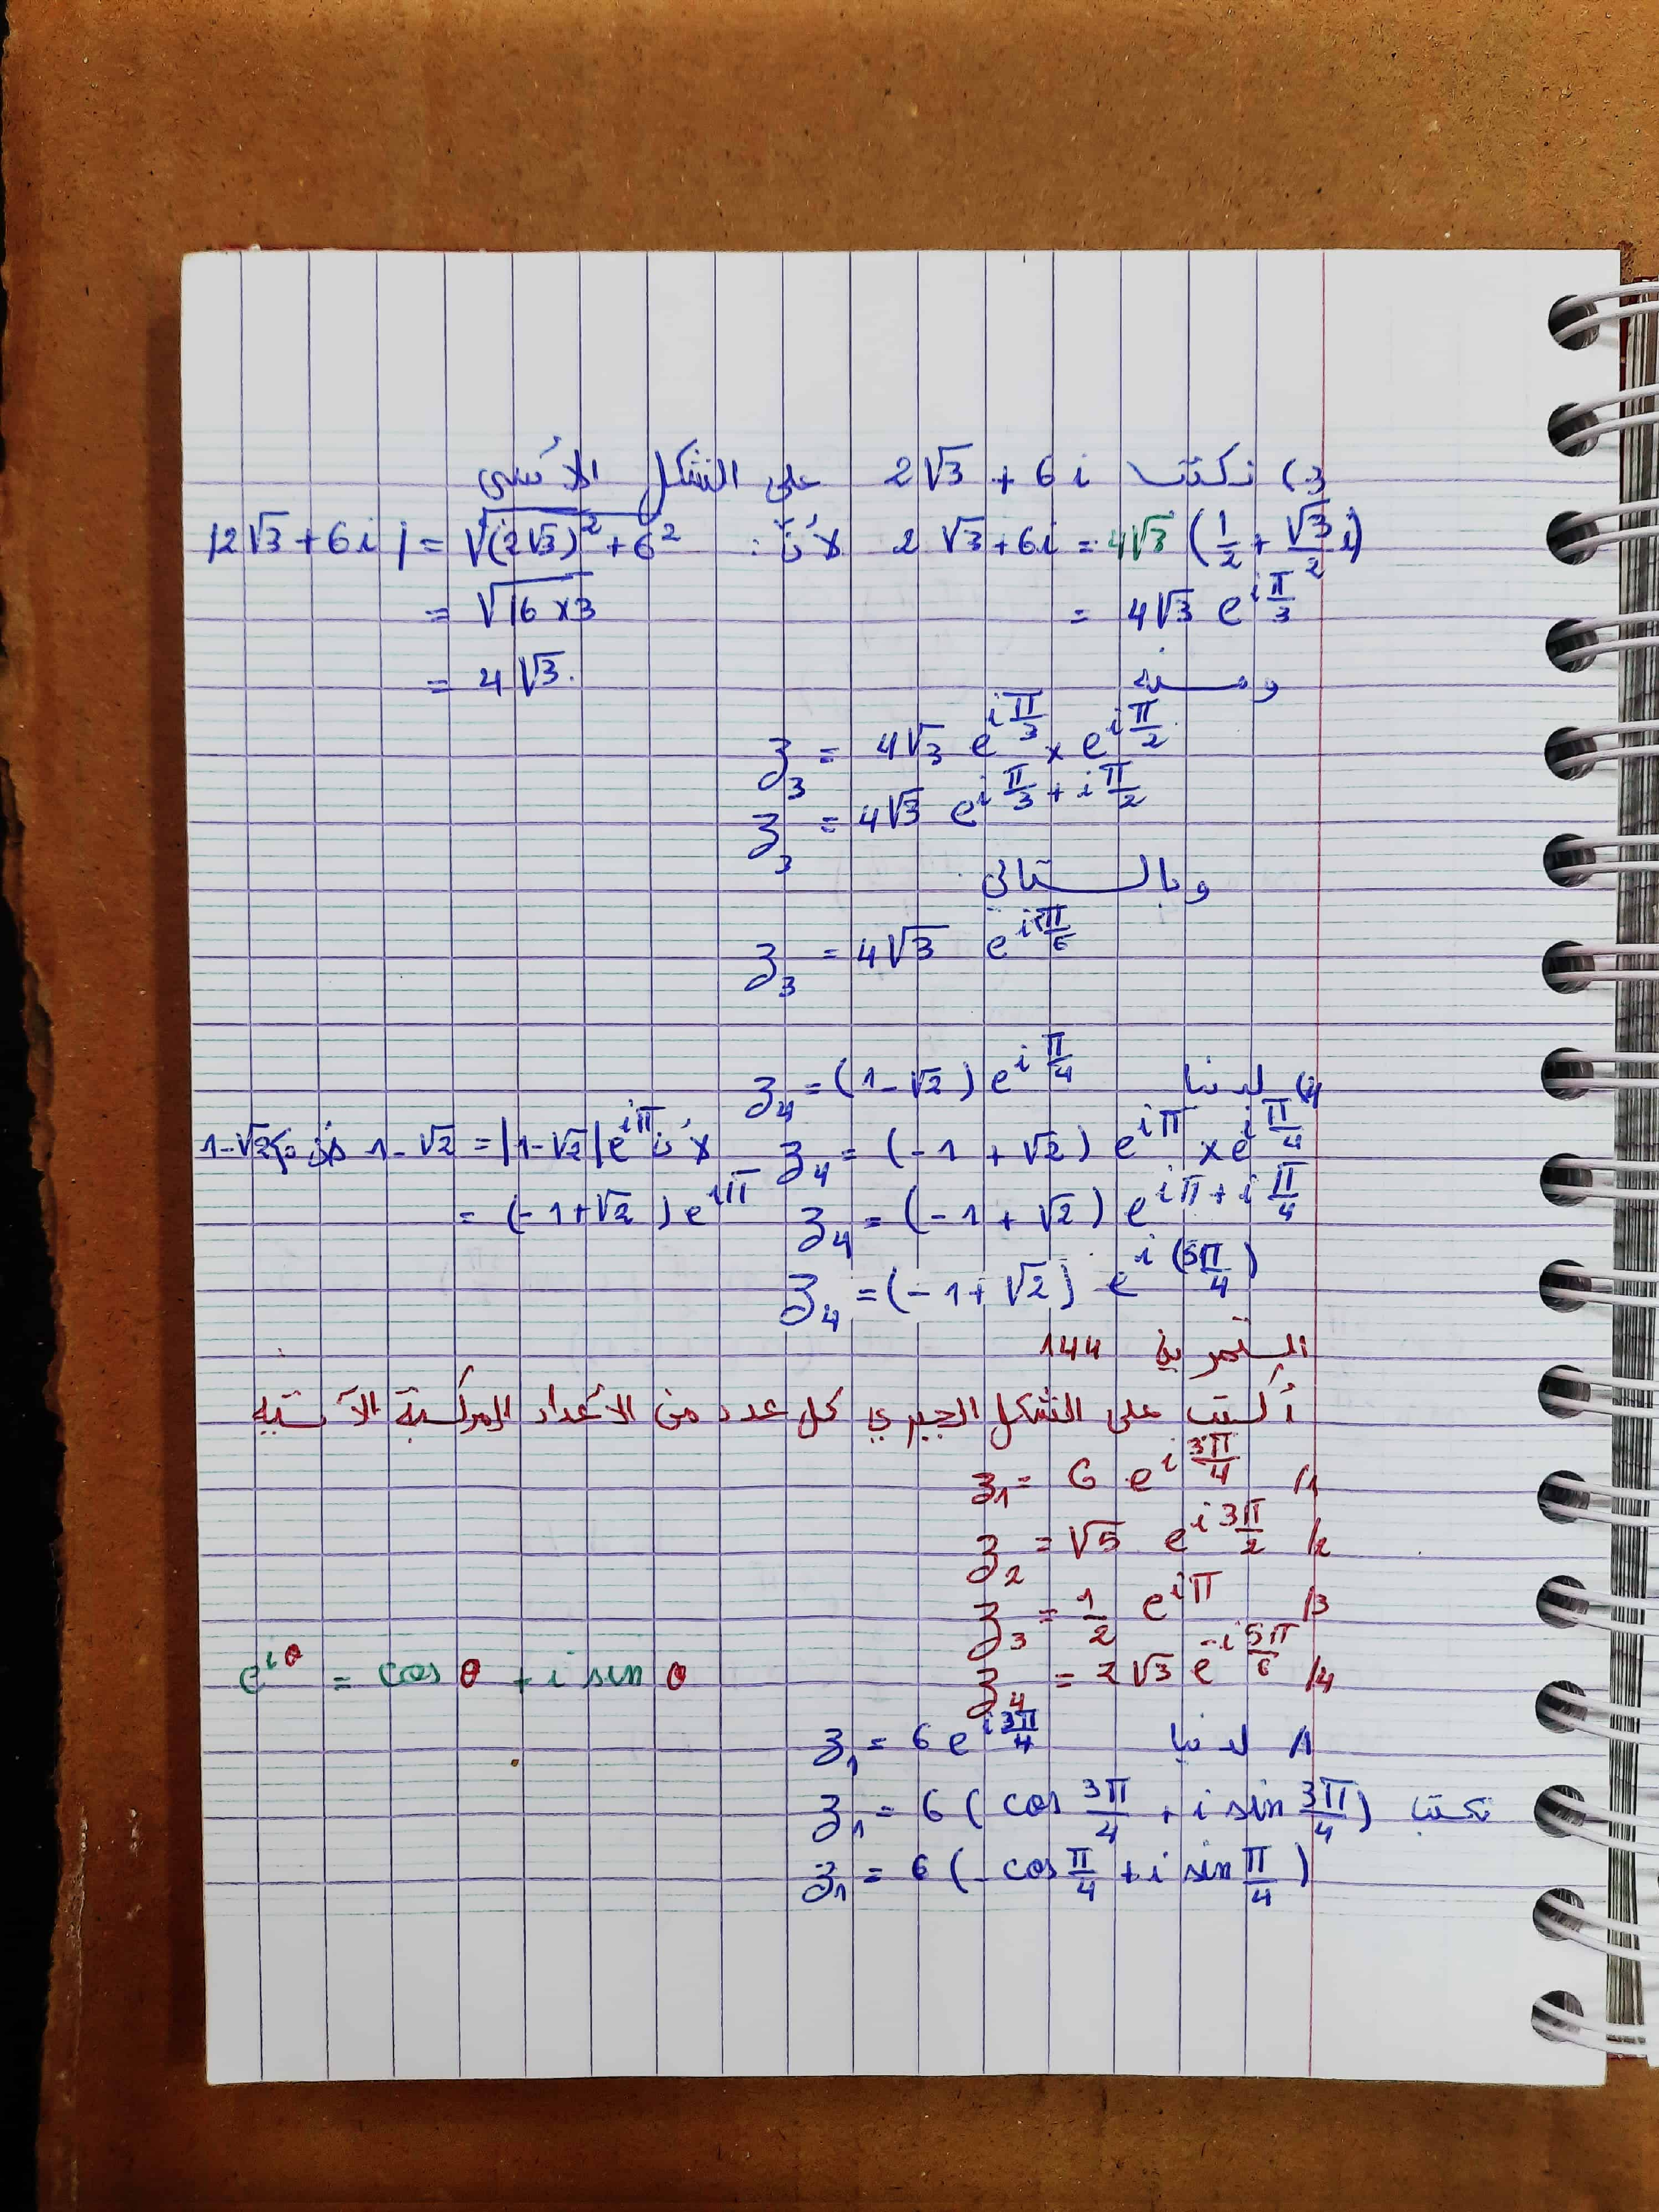 3) نكتب 2√3 + 6i على الشكل الأسي
2√3 + 6i = 4√3 (1/2 + √3/2 i) لأن: |2√3 + 6i| = √((2√3)² + 6²)
= 4√3 e^(iπ/3) = √(16×3)
ومنه = 4√3.
z₃ = 4√3 e^(iπ/3) × e^(iπ/2)
z₃ = 4√3 e^(iπ/3 + iπ/2)
وبالتالي
z₃ = 4√3 e^(i5π/6)
4) لدينا z₄ = (1-√2) e^(iπ/4)
z₄ = (-1 + √2) e^(iπ) × e^(iπ/4) لأن 1-√2 = |1-√2| e^(iπ) 1-√2<0
z₄ = (-1 + √2) e^(iπ + iπ/4) = (-1+√2) e^(iπ)
z₄ = (-1 + √2) e^(i(5π/4))
التمرين 144
أكتب على الشكل الجبري كل عدد من الأعداد المركبة الآتية
1/ z₁ = 6 e^(i3π/4)
2/ z₂ = √5 e^(i3π/2)
3/ z₃ = 1/2 e^(iπ)
4/ z₄ = 2√3 e^(-i5π/6) e^(iθ) = cos θ + i sin θ
1/ لدينا z₁ = 6 e^(i3π/4)
نكتب z₁ = 6 ( cos 3π/4 + i sin 3π/4 )
z₁ = 6 ( - cos π/4 + i sin π/4 )